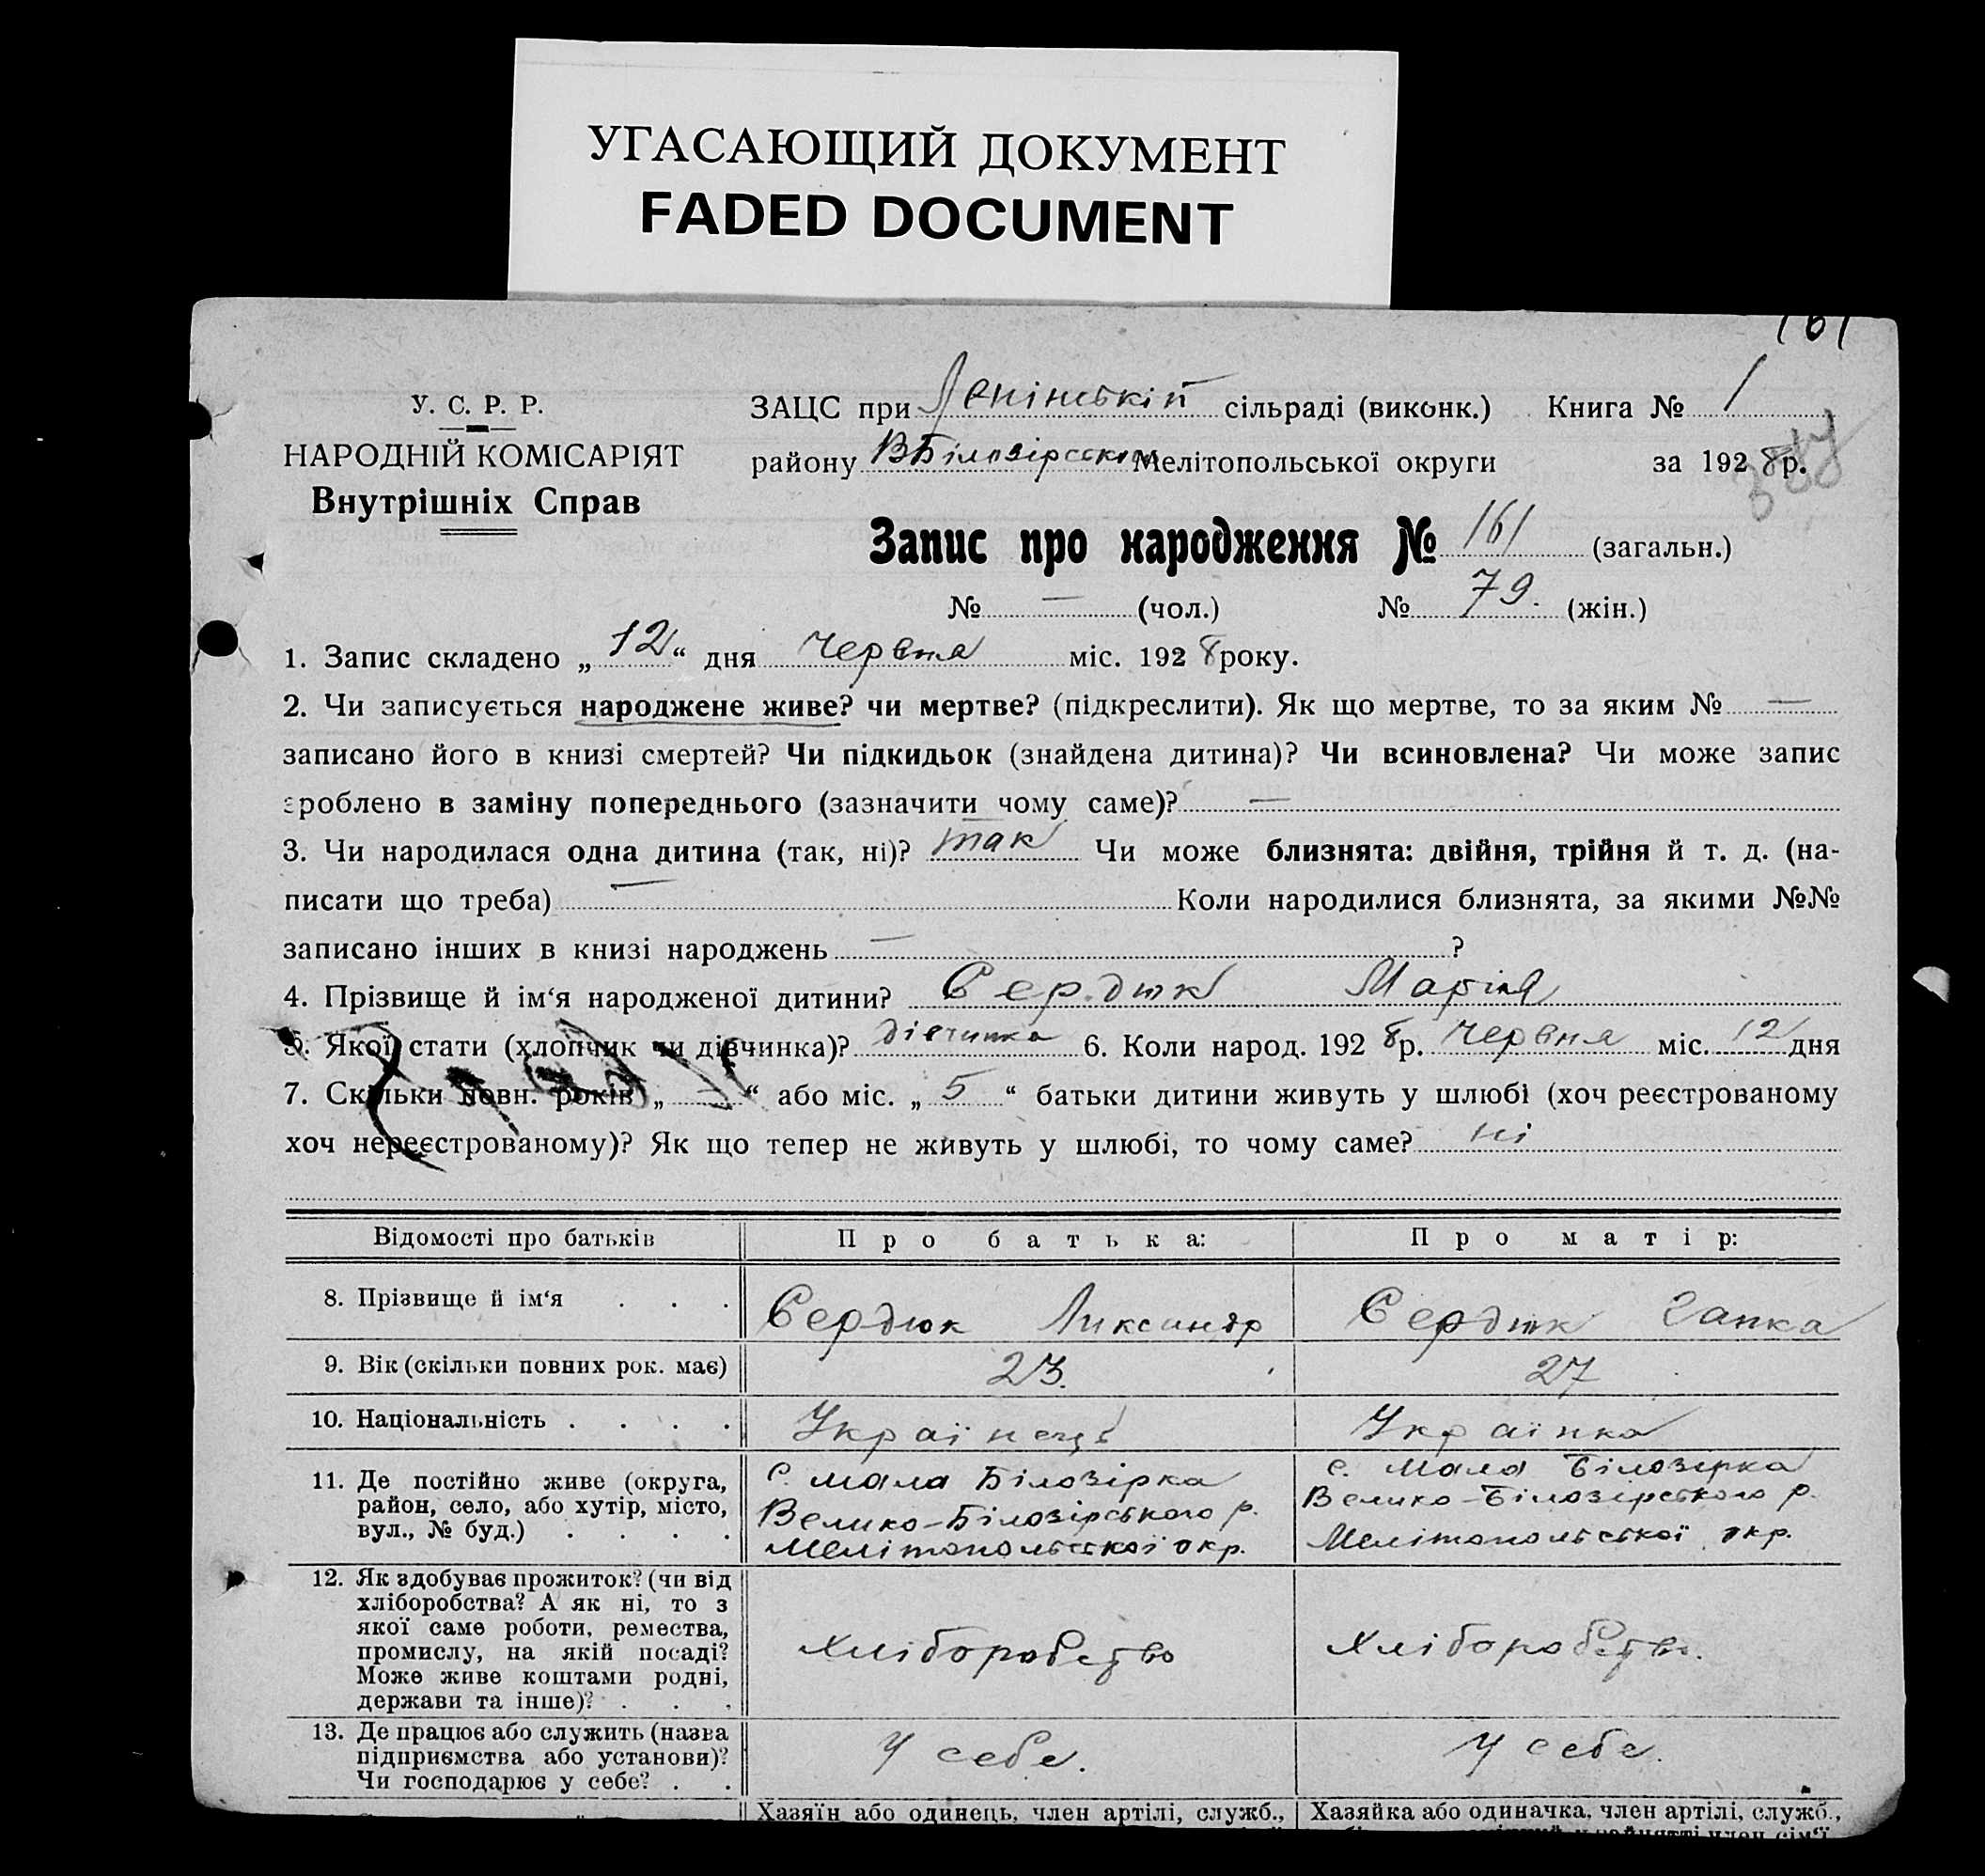 УГАСАЮЩИЙ ДОКУМЕНТ
FADED DOCUMENT
161
У. С. Р. Р.
НАРОДНІЙ КОМІСАРІЯТ
Внутрішніх Справ
ЗАЦС при Ленінській сільраді (виконк.) Книга № 1
району ВБілозірського Мелітопольської округи за 1928 р.
Запис про народження № 161 (загальн.)
№ — (чол.) № 79. (жін.)
1. Запис складено „12“ дня червня міс. 1928 року.
2. Чи записується народжене живе? чи мертве? (підкреслити). Як що мертве, то за яким № —
записано його в книзі смертей? Чи підкидьок (знайдена дитина)? Чи всиновлена? Чи може запис
зроблено в заміну попереднього (зазначити чому саме)? —
3. Чи народилася одна дитина (так, ні)? так Чи може близнята: двійня, трійня й т. д. (на-
писати що треба) — Коли народилися близнята, за якими №№
записано інших в книзі народжень — ?
4. Прізвище й ім‘я народженої дитини? Сердюк Марія
5. Якої стати (хлопчик чи дівчинка)? дівчинка 6. Коли народ. 1928 р. червня міс. 12 дня
7. Скільки повн. років „ — “ або міс. „ 5 “ батьки дитини живуть у шлюбі (хоч реєстрованому
хоч нереєстрованому)? Як що тепер не живуть у шлюбі, то чому саме? ні
Відомості про батьків Про батька: Про матір:
8. Прізвище й ім‘я . . . Сердюк Ликсандр Сердюк Гапка
9. Вік (скільки повних рок. має) 23. 27
10. Національність . . . . Українець Українка
11. Де постійно живе (округа,
район, село, або хутір, місто,
вул., № буд.) . . . .
с. Мала Білозірка
Велико-Білозірського р.
Мелітопольської окр.
с. Мала Білозірка
Велико-Білозірського р.
Мелітопольської окр.
12. Як здобуває прожиток? (чи від
хліборобства? А як ні, то з
якої саме роботи, ремества,
промислу, на якій посаді?
Може живе коштами родні,
держави та інше)? . . .
Хліборобство
Хліборобство.
13. Де працює або служить (назва
підприємства або установи)?
Чи господарює у себе? . .
У себе.
У себе.
Хазяїн або одинець, член артілі, служб., Хазяйка або одиначка, член артілі, служб.,